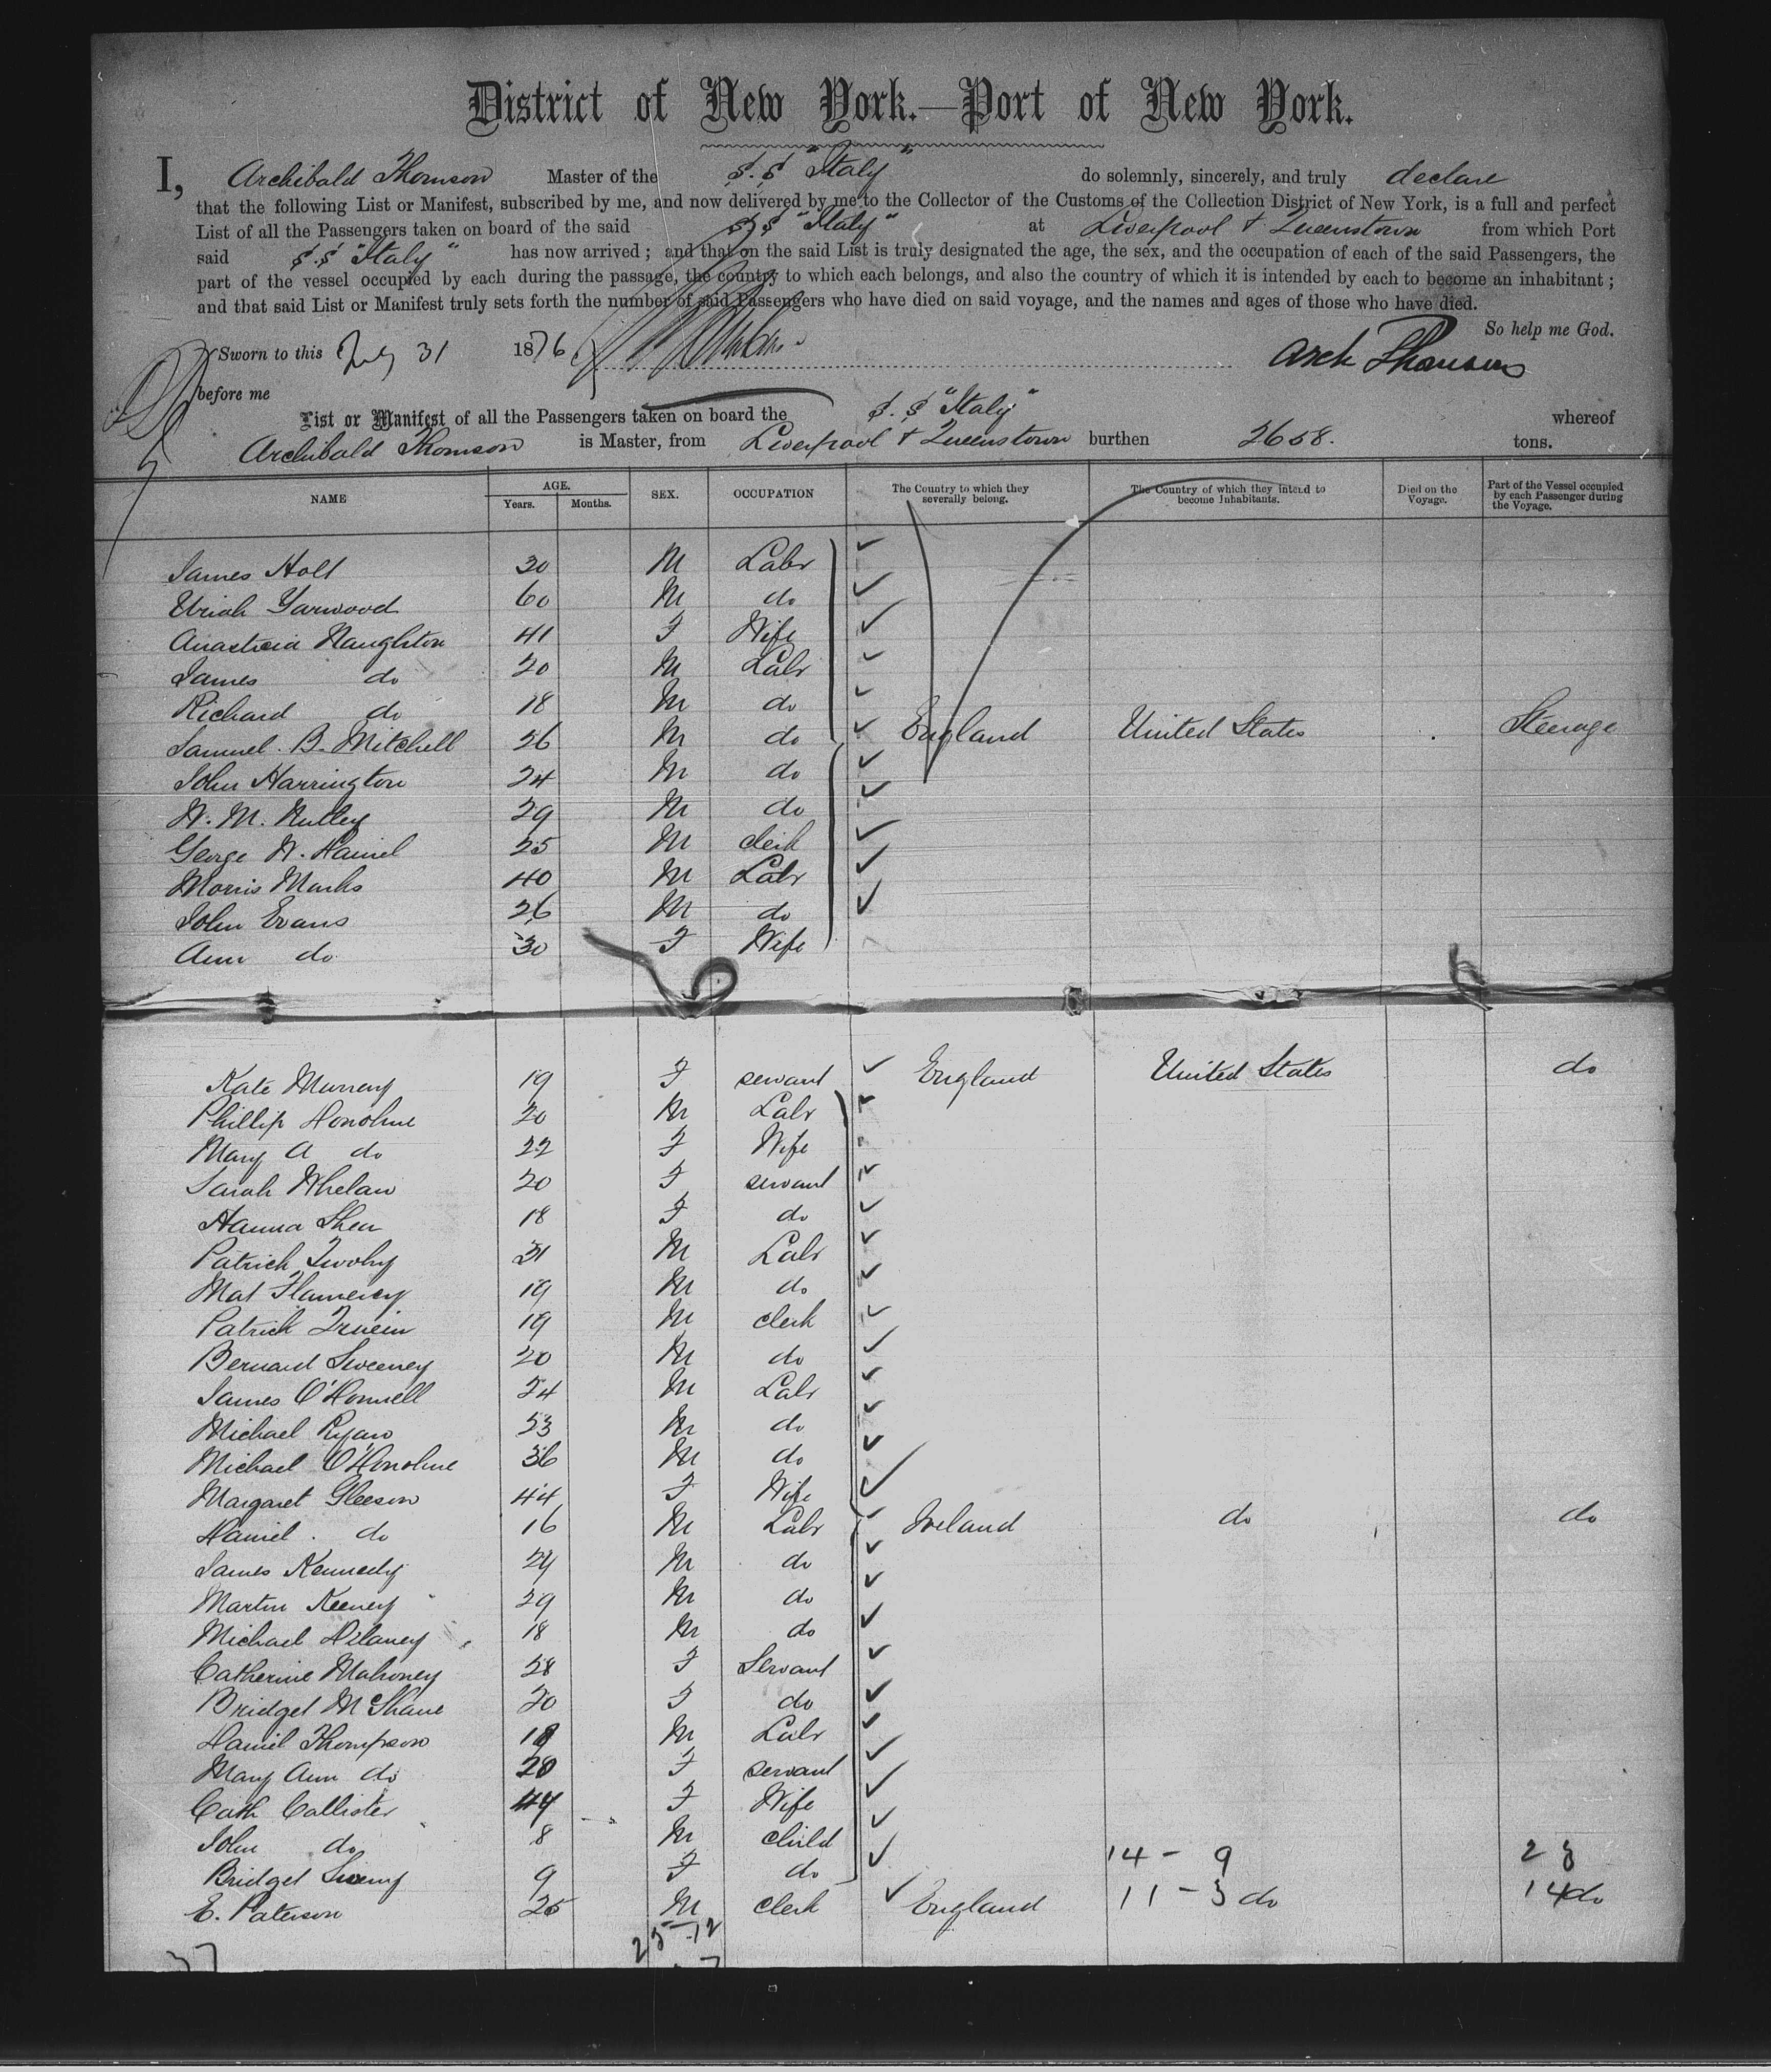 District of New York.—Port of New York.
I, Archibald Thomson Master of the S.S "Italy" do solemnly, sincerely, and truly declare
that the following List or Manifest, subscribed by me, and now delivered by me to the Collector of the Customs of the Collection District of New York, is a full and perfect
List of all the Passengers taken on board of the said S.S "Italy" at Liverpool & Queenstown from which Port
said S.S "Italy" has now arrived; and that on the said List is truly designated the age, the sex, and the occupation of each of the said Passengers, the
part of the vessel occupied by each during the passage, the country to which each belongs, and also the country of which it is intended by each to become an inhabitant;
and that said List or Manifest truly sets forth the number of said Passengers who have died on said voyage, and the names and ages of those who have died.
So help me God.
Sworn to this July 31 1876 Arch Thomson
before me
List or Manifest of all the Passengers taken on board the S.S "Italy" whereof
Archibald Thomson is Master, from Liverpool & Queenstown burthen 2658. tons.
NAME AGE. Years. Months. SEX. OCCUPATION The Country to which they severally belong. The Country of which they intend to become Inhabitants. Died on the Voyage. Part of the Vessel occupied by each Passenger during the Voyage.
James Holt 30 M Labr
Uriah Yarwood 60 M do
Anasticia Naughton 41 F Wife
James do 20 M Labr
Richard do 18 M do
Samuel B. Mitchell 26 M do England United States Steerage
John Harrington 24 M do
W. M. Nutley 29 M do
George W. Daniel 25 M clerk
Morris Marks 40 M Labr
John Evans 26 M do
Ann do 30 F Wife
Kate Murray 19 F servant England United States do
Phillip Donohue 20 M Labr
Mary A do 22 F Wife
Sarah Whelan 20 F servant
Hanna Shea 18 F do
Patrick Twohy 31 M Labr
Mat Flannery 19 M do
Patrick 19 M clerk
Bernard Sweeney 20 M do
James O'Donnell 24 M Labr
Michael Ryan 53 M do
Michael O'Donohue 36 M do
Margaret Gleeson 44 F Wife
Daniel do 16 M Labr Ireland do do
James Kennedy 24 M do
Martin Keeney 29 M do
Michael Delaney 18 M do
Catherine Mahoney 28 F Servant
Bridget McShane 20 F do
Daniel Thompson 19 M Labr
Mary Ann do 20 F servant
Cath Callister 44 F Wife
John do 8 M child
Bridget Sweeny 9 F do 14 - 9 23
E. Paterson 25 M clerk England 11 - 3 do 14 do
25-12
37